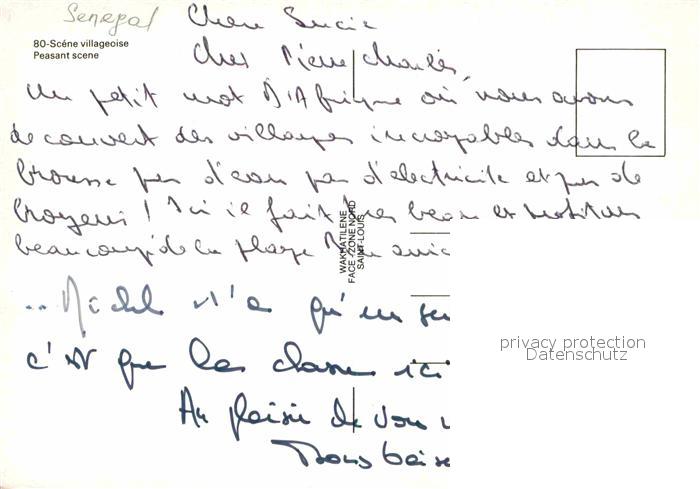 Senegal
80-Scéne villageoise
Peasant scene
Chere Lucie
Cher Pierre Charles,
Un petit mot D'Afrique où nous avons
decouvert des villages incroyables dans la
brousse pas d'eau pas d'electricite et pas de
moyens! Ici il fait tres beau et
beaucoup de la plage
WAKHATILENE
FACE / ZONE NORD
SAINT-LOUIS
.. Michel n'a qu'un
c'est que les classes ici
privacy protection
Datenschutz
Au plaisir de vous
Bons baise